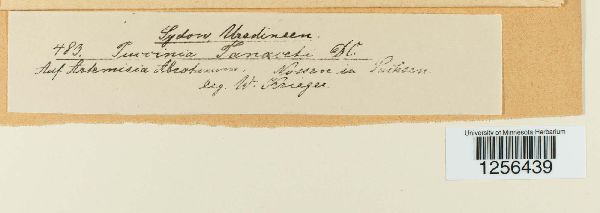 Sydow, Uredineen.
483. Puccinia Tanaceti DC.
Auf Artemisia Abrotanum. Nossen in Sachsen
leg. W. Krieger
University of Minnesota Herbarium
1256439